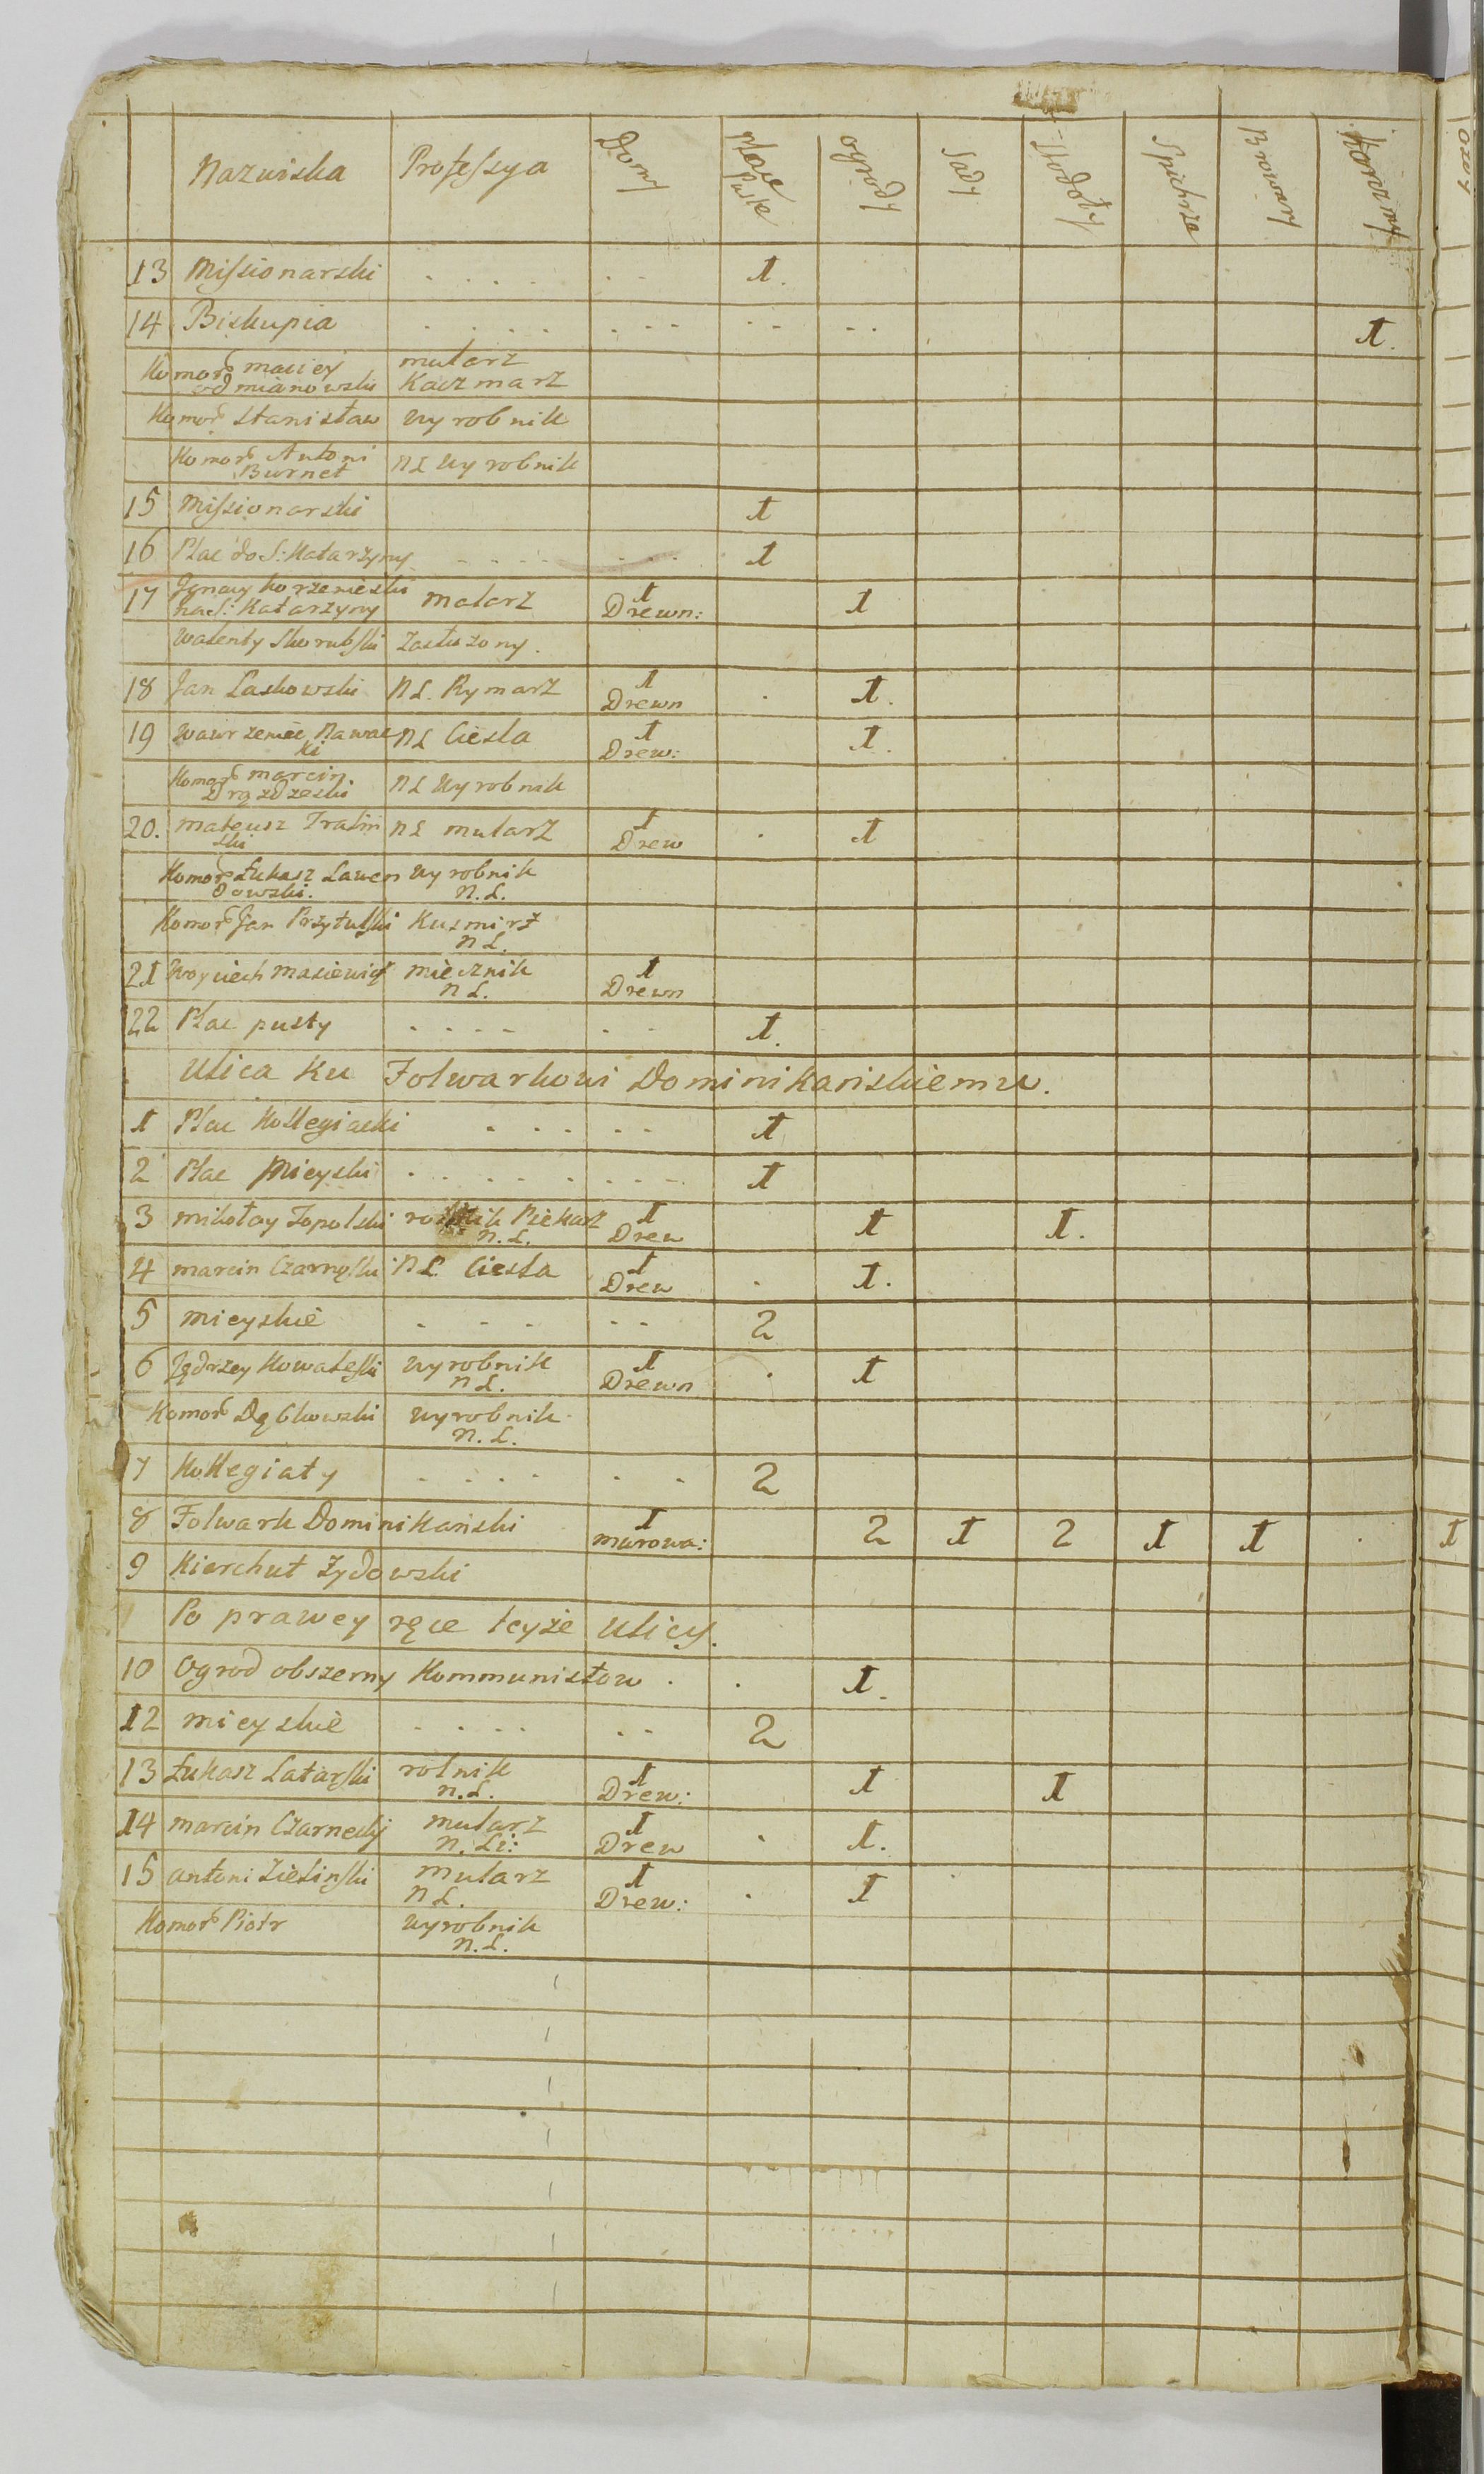 Nazwiska Professya Domy Place puste ogrody Sady Stodoły Spichrze Browary Karczmy
13 Missionarski . . . . . . 1.
14 Biskupia . . . . . . . . . . . 1.
Komor maciey mularz
odmianowski Kaczmarz
Komor Stanisław wyrobnik
Komor Antoni NL wyrobnik
Burnet
15 Missionarski 1
16 Plac do S: Katarzyny . . . . . . . 1
17 Jgnacy Korzenieski malarz 1 Drewn: 1
na S: Katarzyny
Walenty Skorubski zasłużony.
18 Jan Laskowski NL. Rymarz 1 Drewn . 1.
19 Wawrzeniec Nawac NL Ciesla 1 Drew: 1.
ki
Komor marcin NL wyrobnik
Drązdzeski
20. mateusz Tralin NL mularz 1 Drew . 1
ski
Komor Łukasz Lawen wyrobnik
dowski. N.L.
Komor Jan Przytulski Kusmirz
NL.
21 Woyciech Masiewicz miecznik 1 Drewn
NL.
22 Plac pusty . . . . . . 1.
Ulica Ku Folwarkowi Dominikańskiemu.
1 Plac Kollegiacki . . . . . 1
2 Plac Mieyski . . . . . . . . 1
3 mikołay Topolski Piekarz 1 Drew 1 1.
N.L.
4 marcin Czarnęski NL. Ciesla 1 Drew . 1.
5 mieyskie . . . . . 2
6 Jędrzey Kowaleski wyrobnik 1 Drewn . 1
NL.
Komor Dębkowski wyrobnik
N.L.
7 Kollegiaty . . . . . . 2
8 Folwark Dominikański 1 murowa: 2 1 2 1 1 . 1
9 Kierchut żydowski
Po prawey ręce teyże Ulicy.
10 Ogrod obszerny Kommunistow . . 1.
12 mieyskie . . . . . . 2
13 Łukasz Latarski rolnik 1 Drew: 1 1
N.L.
14 marcin Czarnecky mularz 1 Drew . 1.
N. Li:
15 antoni Zieliński mularz 1 Drew: . 1
NL.
Komor Piotr wyrobnik
N.L.